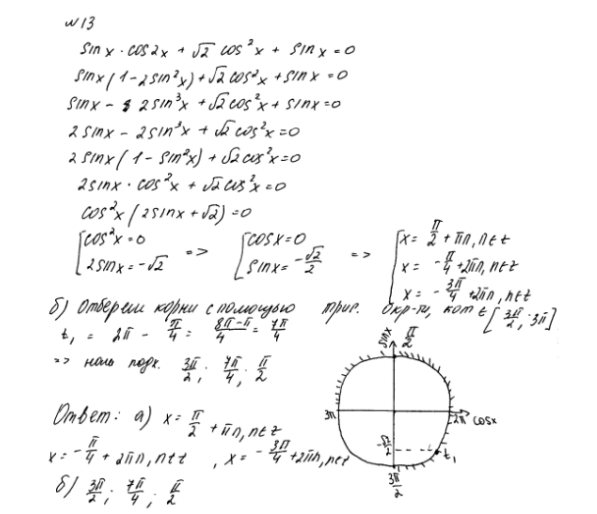 №13
sinx · cos2x + √2 cos²x + sinx = 0
sinx(1 - 2sin²x) + √2cos²x + sinx = 0
sinx - 2sin³x + √2cos²x + sinx = 0
2sinx - 2sin³x + √2cos²x = 0
2sinx(1 - sin²x) + √2cos²x = 0
2sinx · cos²x + √2cos²x = 0
cos²x(2sinx + √2) = 0
[cos²x = 0 => [cosx = 0 => [x = π/2 + πn, n∈z
2sinx = -√2 sinx = -√2/2 x = -π/4 + 2πn, n∈z
x = -3π/4 + 2πn, n∈z
б) Отберем корни с помощью триг. окр-ти, кот ∈ [3π/2; 3π]
t₁ = 2π - π/4 = 8π-π/4 = 7π/4
=> нам подх. 3π/2; 7π/4; π/2
sinx π/2
3π 2π cosx
-√2/2 t₁
3π/2
Ответ: а) x = π/2 + πn, n∈z
x = -π/4 + 2πn, n∈z, x = -3π/4 + 2πn, n∈z
б) 3π/2; 7π/4; π/2